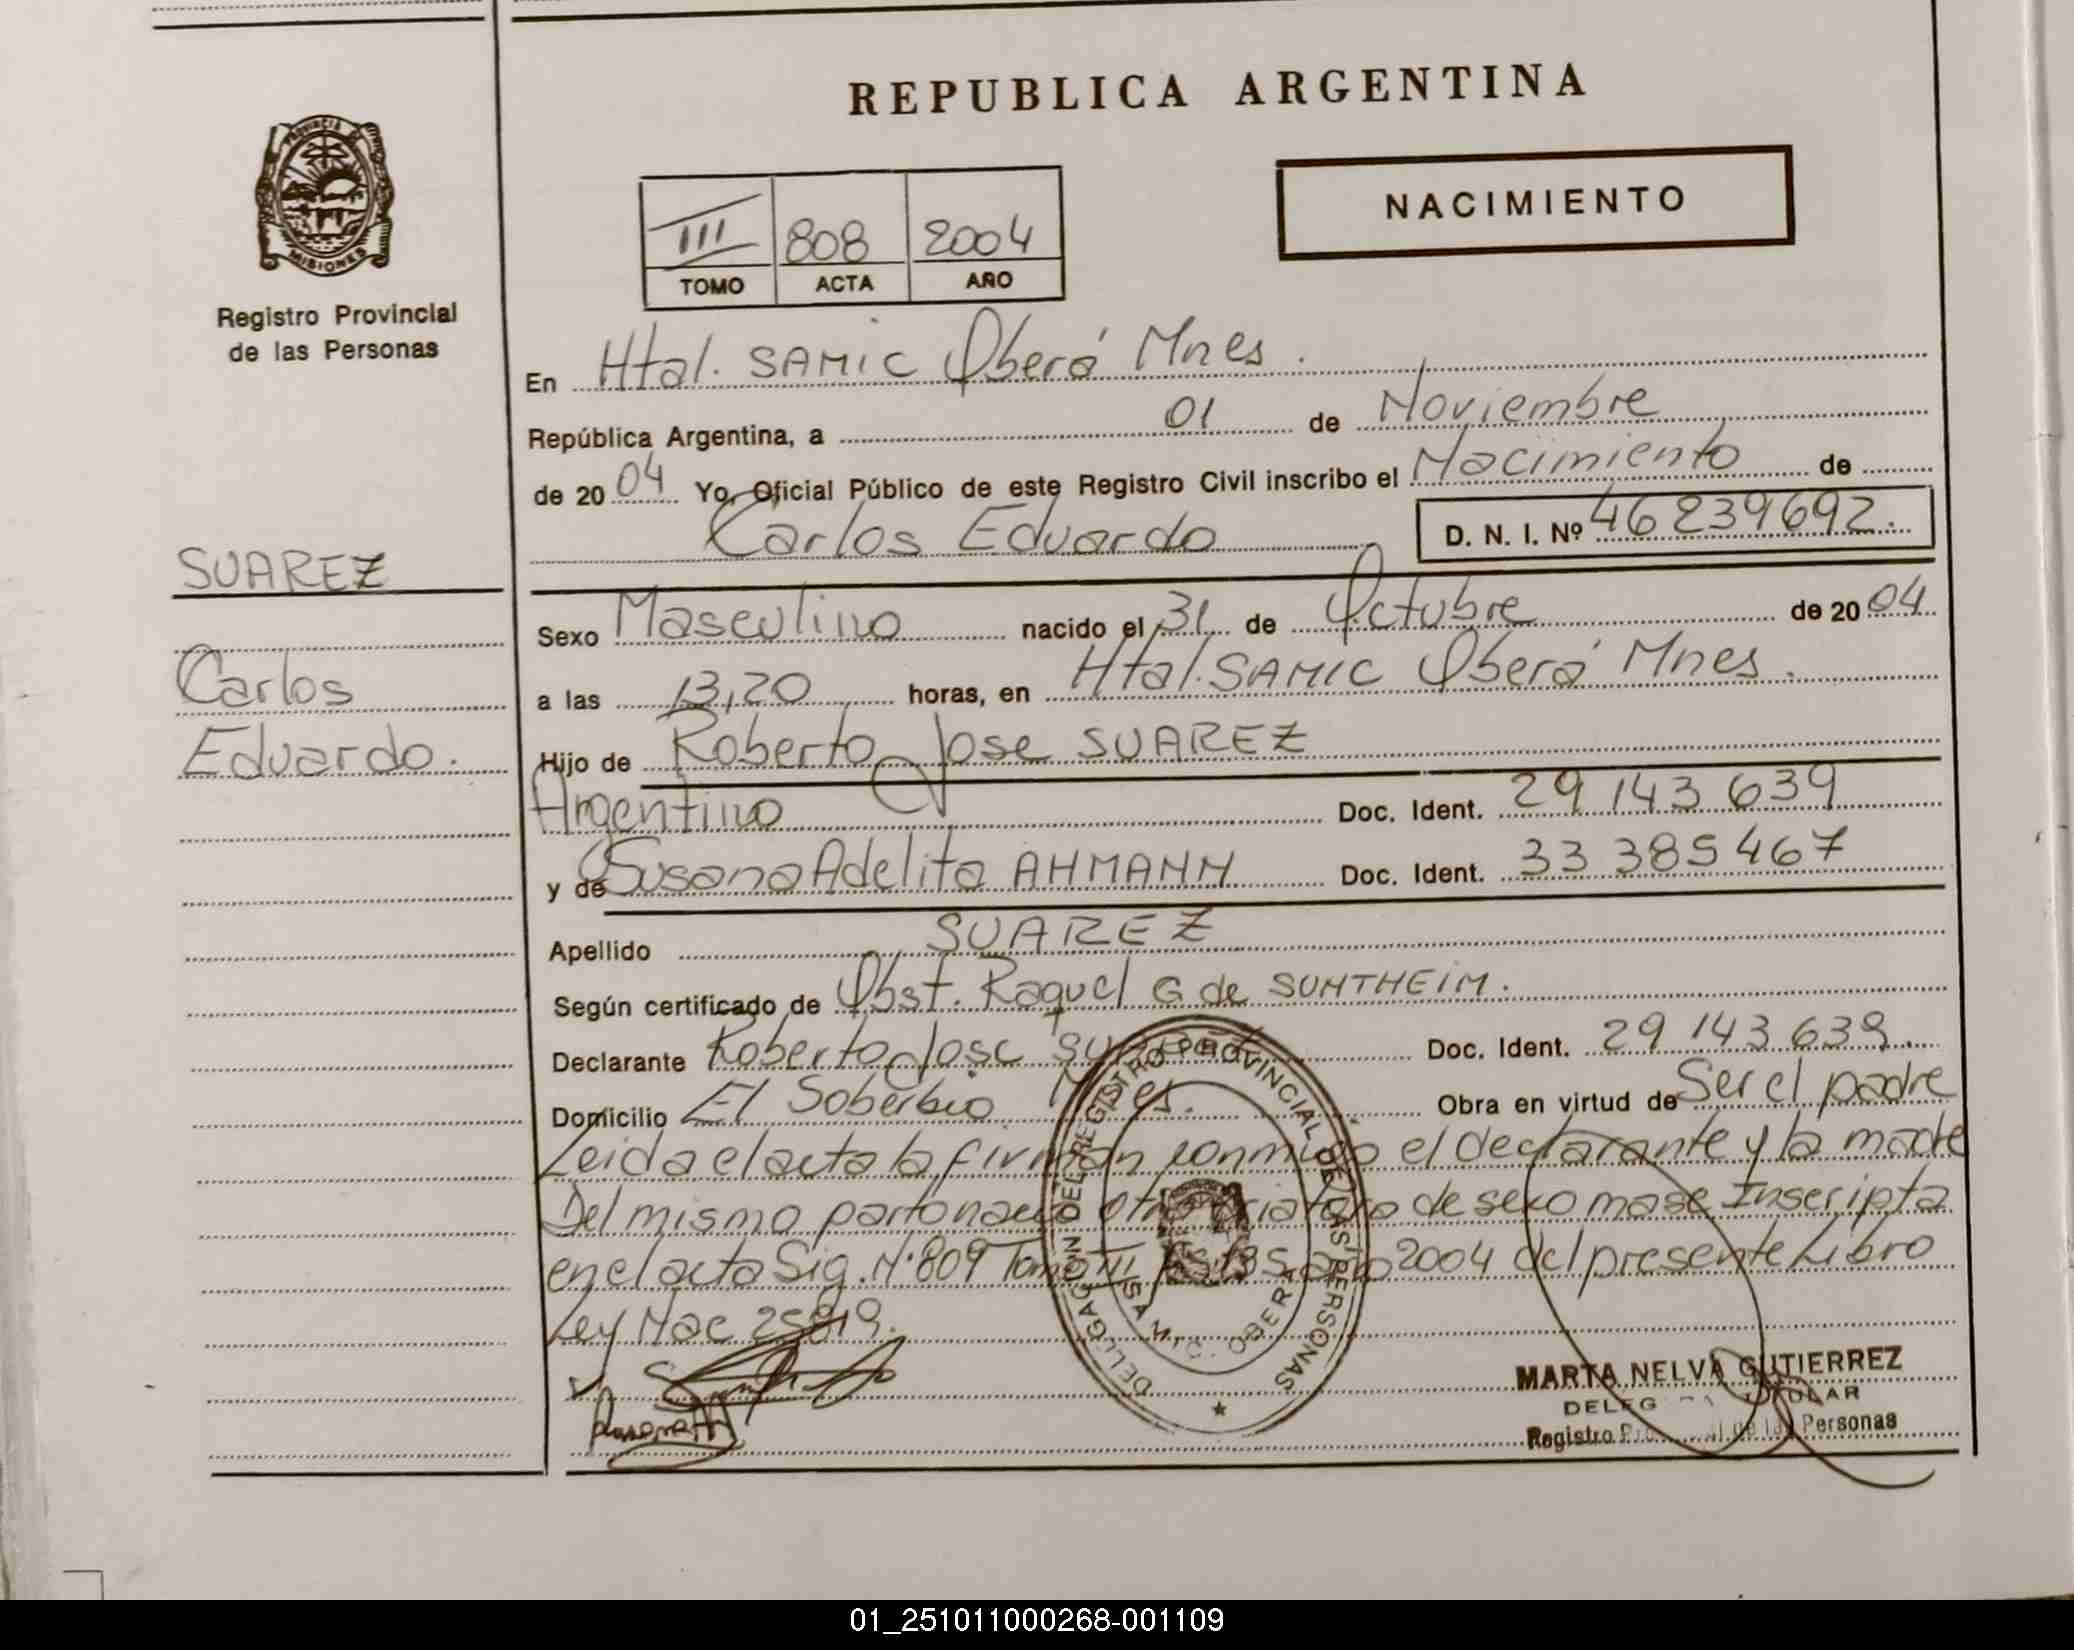 REPUBLICA ARGENTINA
NACIMIENTO
PROVINCIA DE
MISIONES
Registro Provincial
de las Personas
III 808 2004
TOMO ACTA AÑO
En Htal. SAMIC Oberá Mnes.
República Argentina, a 01 de Noviembre
de 20 04 Yo, Oficial Público de este Registro Civil inscribo el Nacimiento de
Carlos Eduardo D. N. I. Nº 46239692.
SUAREZ
Carlos
Eduardo.
Sexo Masculino nacido el 31 de Octubre de 20 04
a las 13,20 horas, en Htal. SAMIC Oberá Mnes.
Hijo de Roberto Jose SUAREZ
Argentino Doc. Ident. 29 143 639
y de Susana Adelita AHMANN Doc. Ident. 33 385 467
Apellido SUAREZ
Según certificado de Obst. Raquel G de SUNTHEIM.
Declarante Roberto Jose SUAREZ Doc. Ident. 29 143 639.
Domicilio El Soberbio Mnes. Obra en virtud de Ser el padre
Leida el acta la firman conmigo el declarante y la madre
Del mismo parto nacio otra criatura de sexo masc Inscripta
en el acta Sig. Nº 809 Tomo III año 2004 del presente Libro
Ley Nac 25819.
REGISTRO PROVINCIAL DE LAS PERSONAS
OBERA
MARTA NELVA GUTIERREZ
TITULAR
Registro de las Personas
01_251011000268-001109